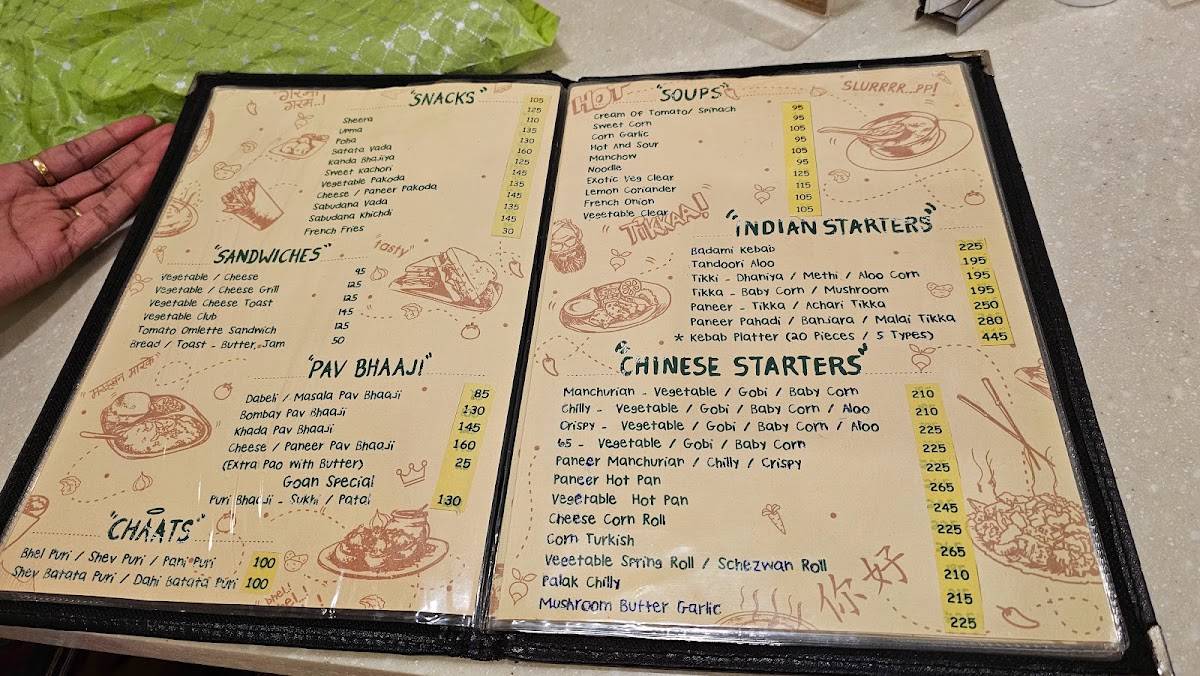 गरमा
गरम..!
"SNACKS"
Sheera
Upma
Poha
Batata Vada
Kanda Bhajiya
Sweet Kachori
Vegetable Pakoda
Cheese / Paneer Pakoda
Sabudana Vada
Sabudana Khichdi
French Fries
105
125
110
135
130
160
125
145
135
145
135
145
30
"SANDWICHES"
"tasty"
Vegetable / Cheese 95
Vegetable / Cheese Grill 125
Vegetable Cheese Toast 125
Vegetable Club 145
Tomato Omlette Sandwich 125
Bread / Toast - Butter, Jam 50
मस्खन मारके
"PAV BHAAJI"
Dabeli / Masala Pav Bhaaji 85
Bombay Pav Bhaaji 130
Khada Pav Bhaaji 145
Cheese / Paneer Pav Bhaaji 160
(Extra Pao With Butter) 25
Goan Special
Puri Bhaaji - Sukhi / Patal 130
"CHAATS"
Bhel Puri / Shev Puri / Pani Puri 100
Shev Batata Puri / Dahi Batata Puri 100
bhel..!
HOT
"SOUPS"
"SLURRRR...PP!
Cream Of Tomato/ Spinach 95
Sweet Corn 95
Corn Garlic 105
Hot And Sour 95
Manchow 105
Noodle 95
Exotic Veg Clear 125
Lemon Coriander 115
French Onion 105
Vegetable Clear 105
TIKKAA!
"INDIAN STARTERS"
Badami Kebab 225
Tandoori Aloo 195
Tikki - Dhaniya / Methi / Aloo Corn 195
Tikka - Baby Corn / Mushroom 195
Paneer - Tikka / Achari Tikka 250
Paneer Pahadi / Banjara / Malai Tikka 280
* Kebab Platter (20 Pieces / 5 Types) 445
"CHINESE STARTERS"
Manchurian - Vegetable / Gobi / Baby Corn 210
Chilly - Vegetable / Gobi / Baby Corn / Aloo 210
Crispy - Vegetable / Gobi / Baby Corn / Aloo 225
65 - Vegetable / Gobi / Baby Corn 225
Paneer Manchurian / Chilly / Crispy 225
Paneer Hot Pan 265
Vegetable Hot Pan 245
Cheese Corn Roll 225
Corn Turkish 265
Vegetable Spring Roll / Schezwan Roll 210
Palak Chilly 215
Mushroom Butter Garlic 225
你好